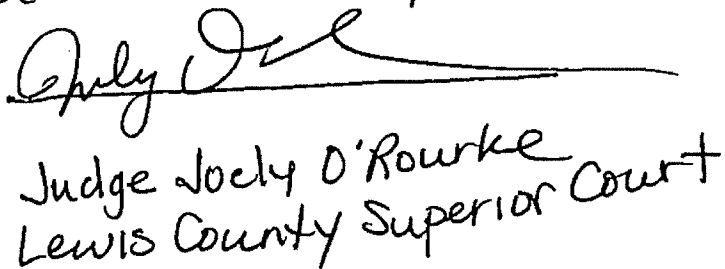 Judge Joely O'Rourke
Lewis County Superior Court